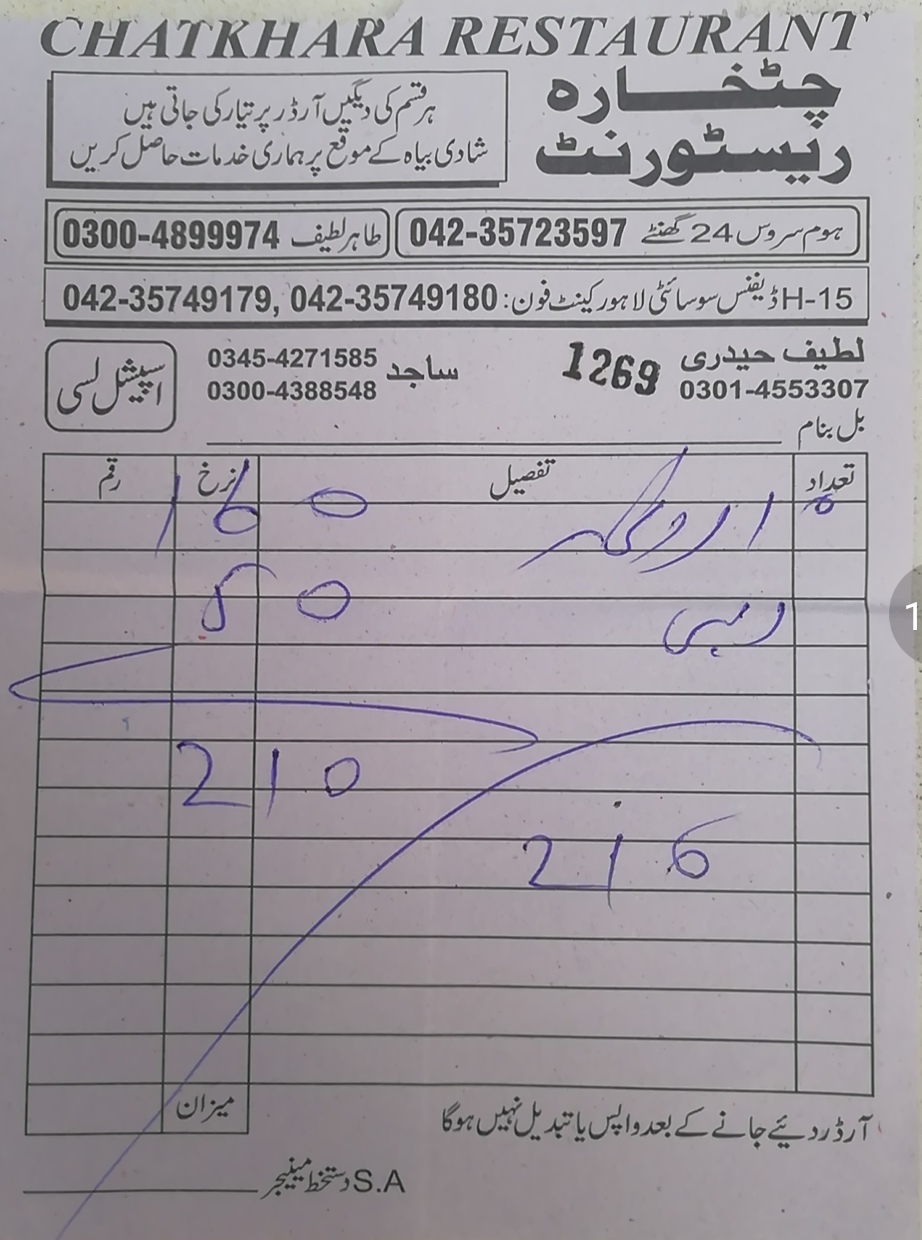 CHATKHARA RESTAURANT
چٹخارہ
ریسٹورنٹ
ہر قسم کی دیگیں آرڈر پر تیار کی جاتی ہیں
شادی بیاہ کے موقع پر ہماری خدمات حاصل کریں
ہوم سروس 24 گھنٹے 042-35723597
طاہر لطیف 0300-4899974
H-15 ڈیفنس سوسائٹی لاہور کینٹ فون: 042-35749179, 042-35749180
لطیف حیدری
0301-4553307
1269
ساجد
0345-4271585
0300-4388548
اسپیشل لسی
بل بنام
تعداد تفصیل نرخ رقم
160
دہی 50
210
216
میزان
آرڈر دیئے جانے کے بعد واپس یا تبدیل نہیں ہوگا
S.A دستخط مینیجر
1